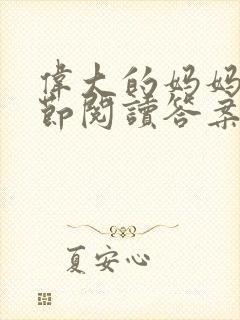 偉大的妈妈
節閱讀答案
夏安心